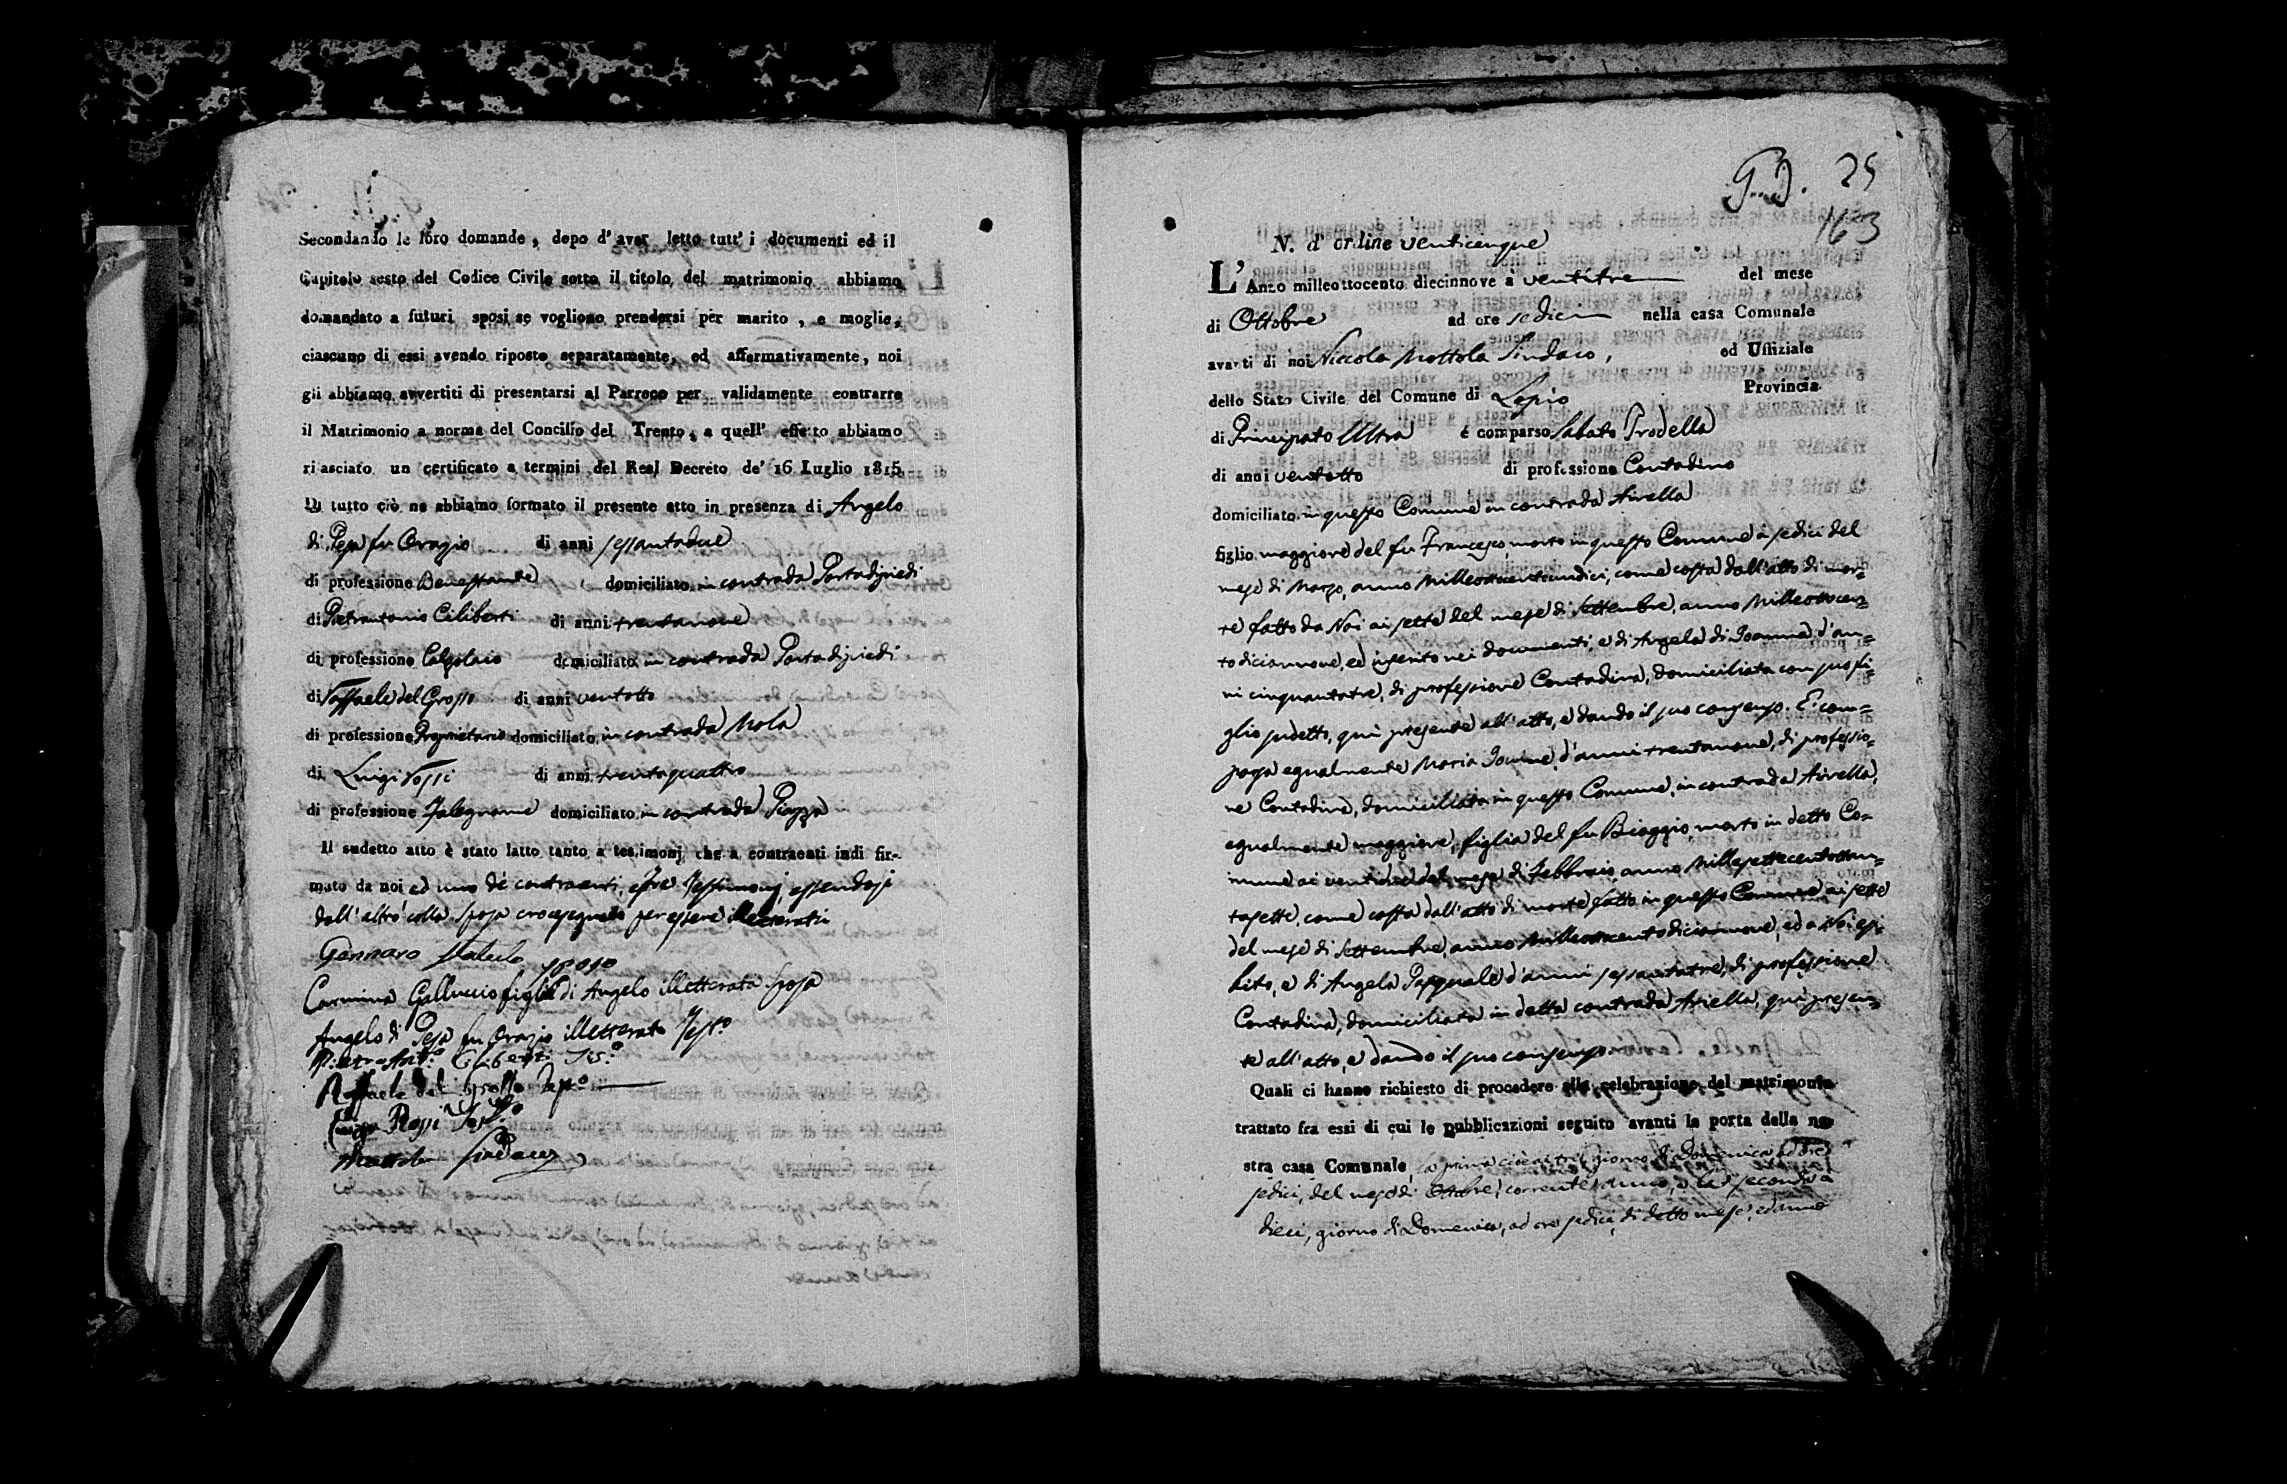 Secondando le loro domande, dopo d'aver letto tutt'i documenti ed il
Capitolo sesto del Codice Civile sotto il titolo del matrimonio abbiamo
domandato a futuri sposi se vogliono prendersi per marito, e moglie,
ciascuno di essi avendo riposto separatamente, ed affermativamente, noi
gli abbiamo avvertiti di presentarsi al Parroco per validamente contrarre
il Matrimonio a norma del Concilio del Trento, a quell' effetto abbiamo
ri asciato un certificato a termini del Real Decreto de' 16 Luglio 1815.
Di tutto ciò ne abbiamo formato il presente atto in presenza di Angelo
di Pesa fu Orazio di anni sessantadue
di professione Benestante domiciliato in contrada Portadipiedi
di Pietrantonio Ciliberti di anni trentanove
di professione Calzolaio domiciliato in contrada Portadipiedi
di Raffaele del Grosso di anni ventotto
di professione Proprietario domiciliato in contrada Mola
di Luigi Rossi di anni trentaquattro
di professione Falegname domiciliato in contrada Piazza
Il sudetto atto è stato latto tanto a testimonj che a contraenti indi fir-
mato da noi ed uno de contraenti, e tre Testimonj, essendosi
dall'altro colla Sposa crocesegnato per essere illetterati
Gennaro sposo
Carmina Galluccio figlia di Angelo illetterata Sposa
Angelo di Pesa fu Orazio illetterato Testo
Pietro Anto Ciliberti Tes:o
Raffaele del Grosso Testo
Luigi Rossi Testo
Mottola Sindaco
25
163
N. d' ordine venticinque
L' Anno milleottocento diecinnove a ventitre del mese
di Ottobre ad ore sedici nella casa Comunale
avanti di noi Niccola Mottola Sindaco, ed Uffiziale
dello Stato Civile del Comune di Lapio Provincia
di Principato Ultra è comparso Sabato Prodella
di anni ventotto di professione Contadino
domiciliato in questo Comune in contrada Arvella
figlio maggiore del fu Francesco, morto in questo Comune a sedici del
mese di Marzo, anno Milleottocentoundici, come costa dall'atto di mor=
te fatto da Noi ai sette del mese di Settembre, anno Milleottocen=
to diciannove, ed inserito nei documenti, e di Angela di Joanna d'an=
ni cinquantatre, di professione Contadina, domiciliata con suo fi=
glio sudetto, quì presente all'atto, e dando il suo consenso. E' com=
parsa egualmente Maria Jonine, d'anni trentanove, di professio=
ne Contadina, domiciliata in questo Comune, in contrada Arvella,
egualmente maggiore, figlia del fu Biaggio, morto in detto Co=
mune ai ventidue del mese di Febbraio, anno Millesettecentottan=
tasette, come costa dall'atto di morte fatto in questo Comune ai sette
del mese di Settembre, anno Milleottocentodiciannove, ed a Noi esi=
bito, e di Angela Pasquale d'anni sessantatre, di professione
Contadina, domiciliata in detta contrada Arvella, quì presen=
te all'atto, e dando il suo consenso
Quali ci hanno richiesto di procedere alla celebrazione del matrimonio
trattato fra essi di cui le pubblicazioni seguito avanti la porta della no-
stra casa Comunale, la prima cioè ai tre, giorno di Domenica ad ore
sedici, del mese di Ottobre, corrente anno, e la seconda a
dieci, giorno di Domenica, ad ore sedici, di detto mese, ed anno